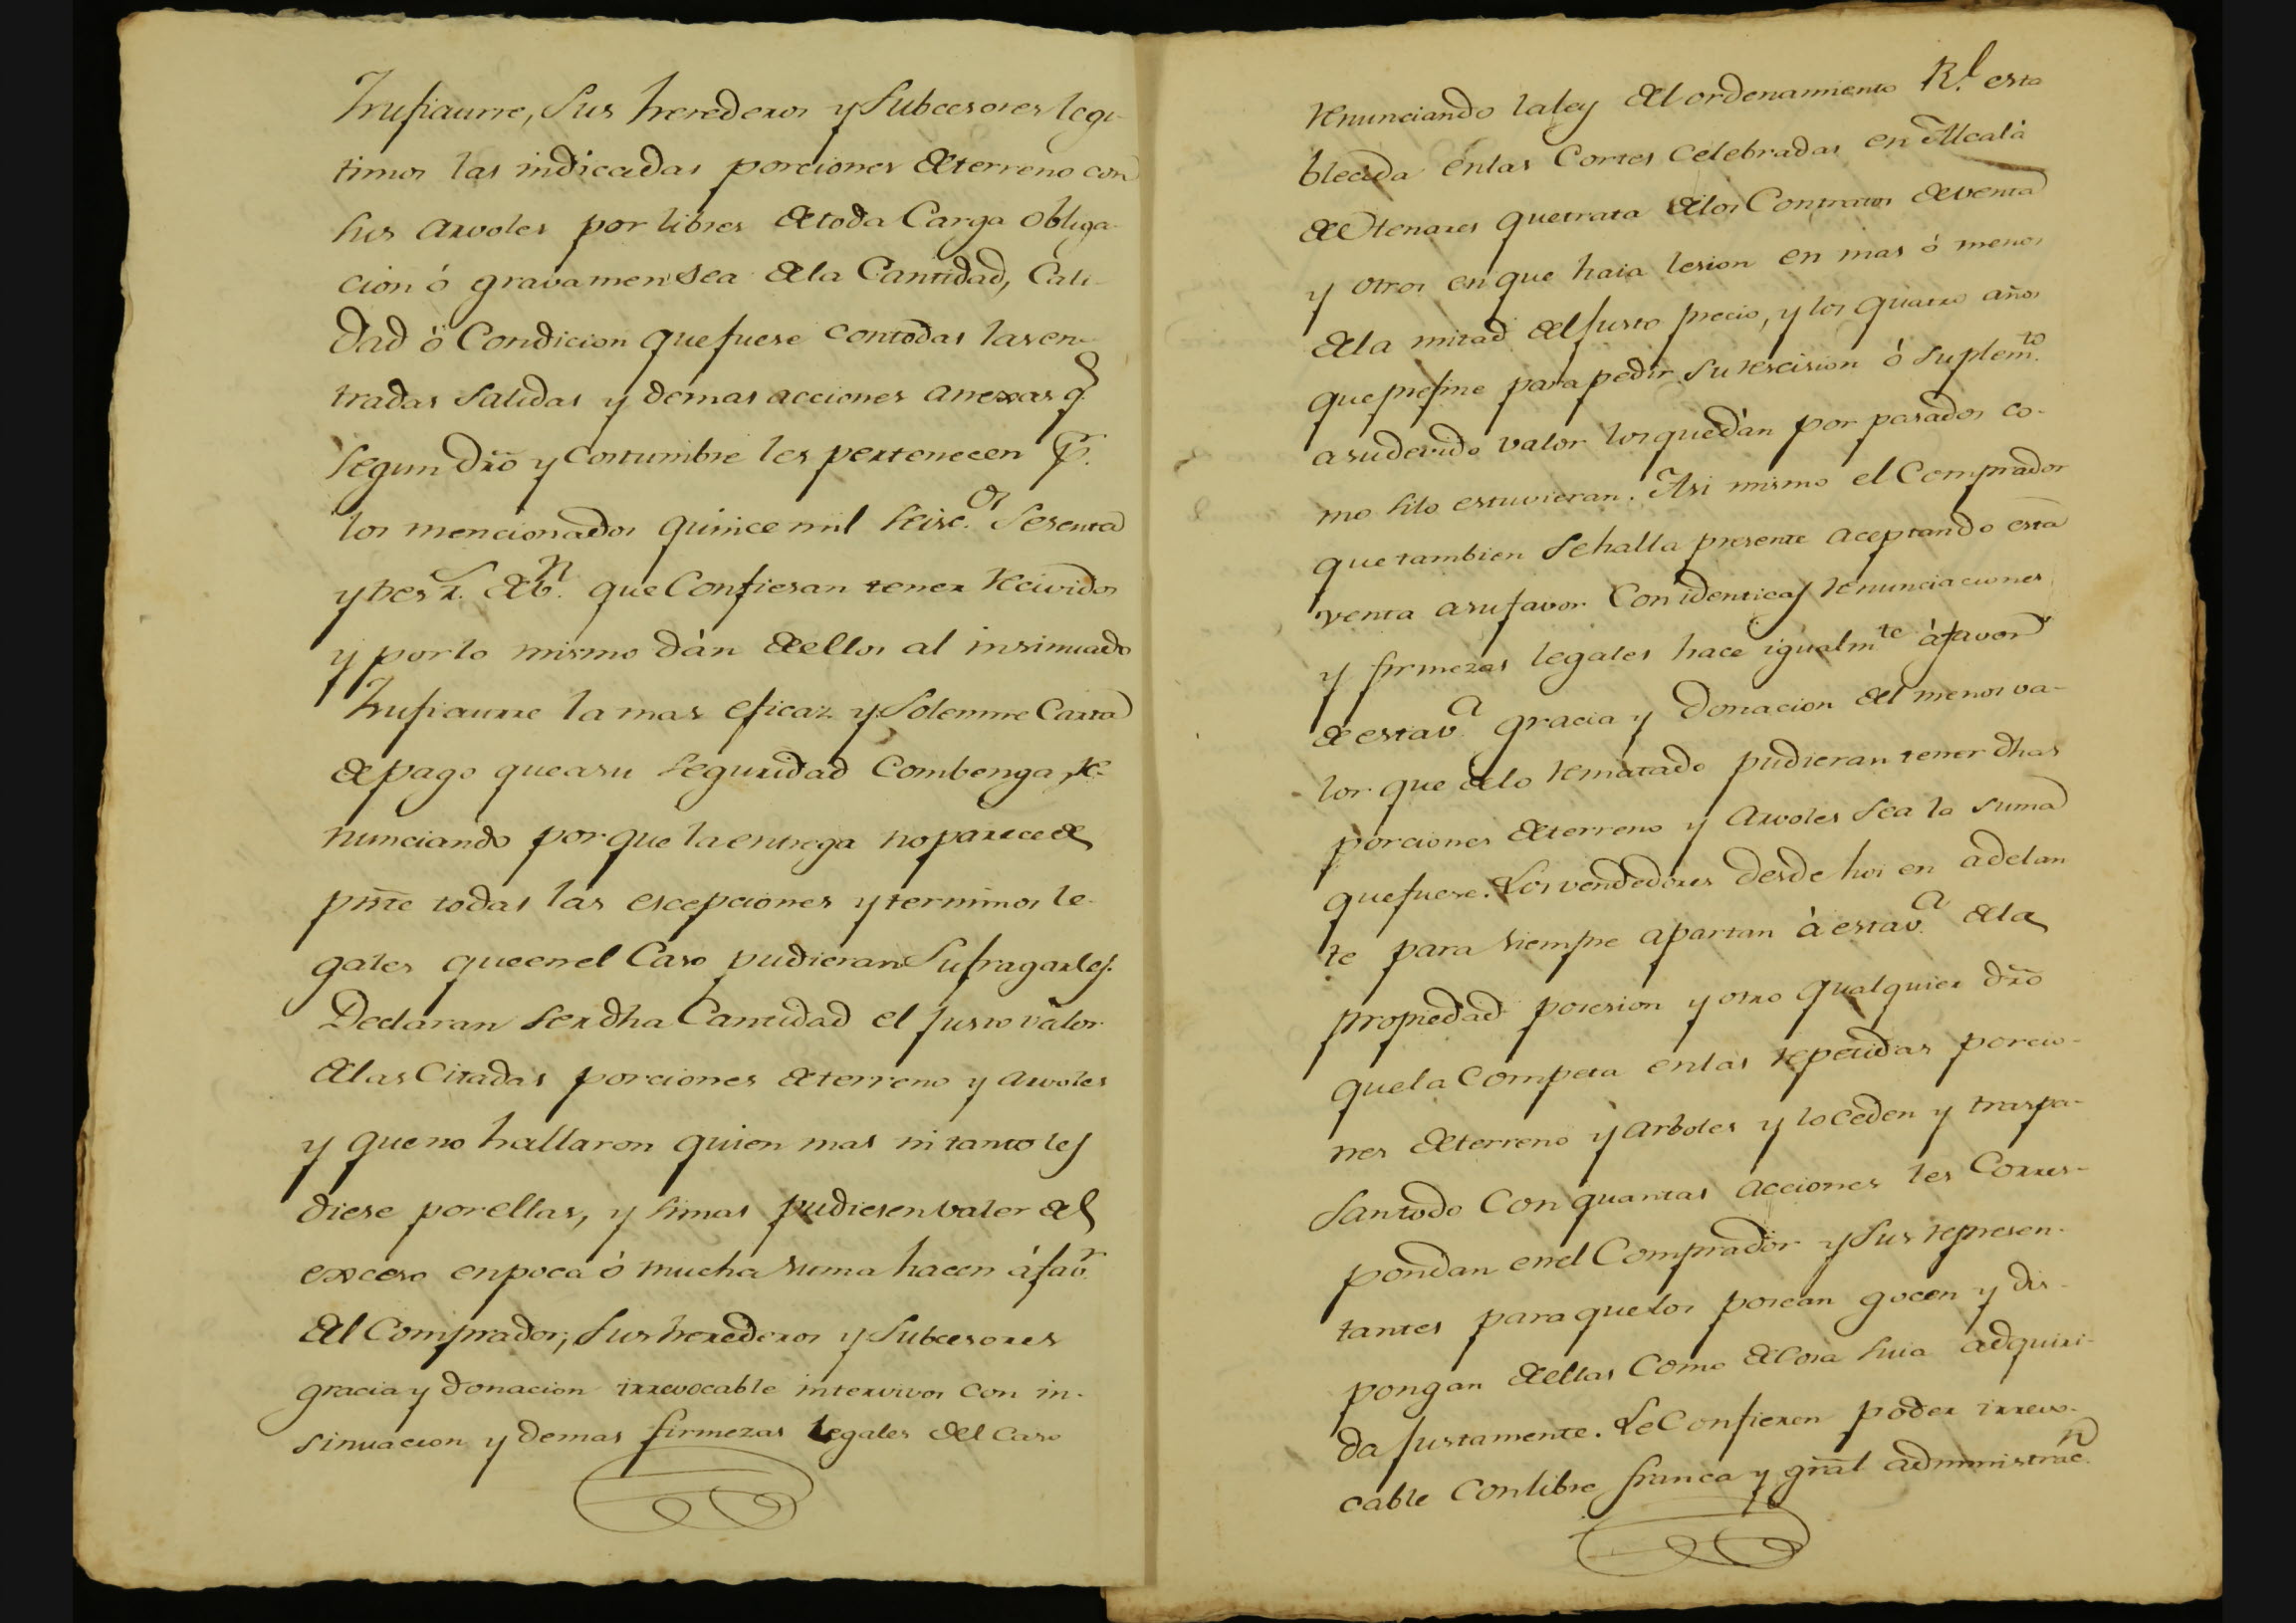 Irusiaurre, sus herederos y Subcesores legi-
timos las indicadas porciones de terreno con
sus arvoles por libres de toda Carga obliga-
cion ó gravamen sea de la Cantidad, Cali-
dad ó Condicion que fuese con todas las en-
tradas salidas y demas acciones anexas q.e
segun dro y costumbre les pertenecen p.r
los mencionados quince mil seisc.os sesenta
y tres r.s de v.n que Confiesan tener recividos
y por lo mismo dàn de ellos al insinuado
Irusiaurre la mas eficaz y Solemne Carta
de pago que a su seguridad Combenga, re-
nunciando por que la entrega no parece de
pnte todas las escepciones y terminos le-
gales que en el Caso pudieran Sufragarles.
Declaran ser dha Cantidad el justo valor
de las Citadas porciones de terreno y arvoles
y que no hallaron quien mas ni tanto les
diese por ellas, y si mas pudiesen valer del
exceso en poca ò mucha suma hacen à fav.r
del Comprador, sus herederos y Subcesores
gracia y donacion irrevocable intervivos con in-
sinuacion y demas firmezas legales del caso
renunciando la ley del ordenamiento R.l esta
blecida en las Cortes Celebradas en Alcalà
de Henares que trata de los Contratos de venta
y otros en que haia lesion en mas ò menos
de la mitad del justo precio, y los quatro años
que prefine para pedir su rescision ò suplem.to
a su devido valor los que dàn por pasados co-
mo si lo estuvieran. Asi mismo el Comprador
que tambien se halla presente aceptando esta
venta a su favor Con identicas renunciaciones
y firmezas legales hace igualm.te à favor
de esta v.a gracia y donacion del menos va-
lor que de lo rematado pudieran tener dhas
porciones de terreno y arvoles sea la suma
que fuese. Los vendedores desde hoi en adelan
te para siempre apartan à esta v.a de la
propiedad posesion y otro qualquier dro
que la Competa en las repetidas porcio-
nes de terreno y arboles y lo ceden y traspa-
san todo Con quantas acciones les Corres-
pondan en el Comprador y sus represen-
tantes para que los posean gocen y dis-
pongan de ellas Como de cosa suia adquiri-
da justamente. Le Confieren poder irrevo-
cable Con libre franca y gral administrac.n